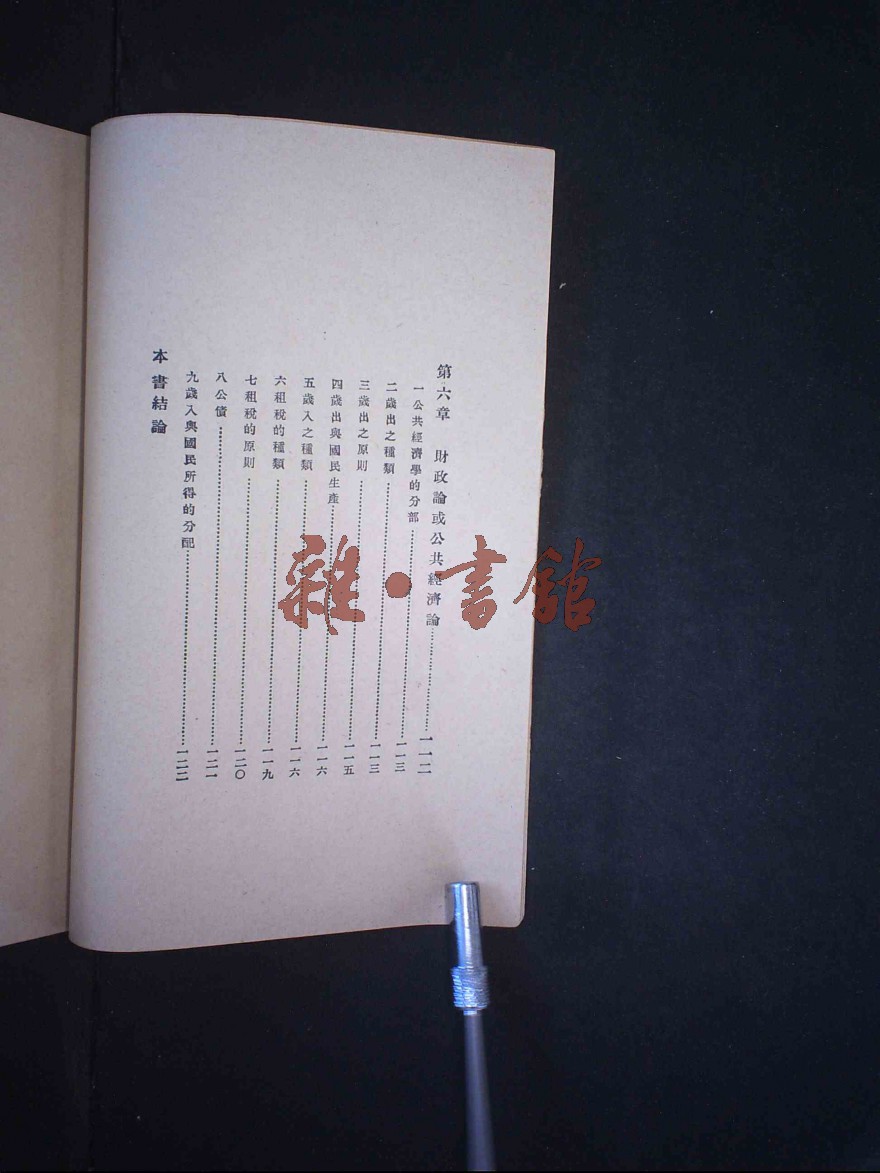 第六章　財政論或公共經濟論…………一一二
一公共經濟學的分部…………一一三
二歲出之種類…………一一三
三歲出之原則…………一一五
四歲出與國民生產…………一一六
五歲入之種類…………一一六
六租稅的種類…………一一九
七租稅的原則…………一二〇
八公債…………一二一
九歲入與國民所得的分配…………一二二
本書結論
雜·書館